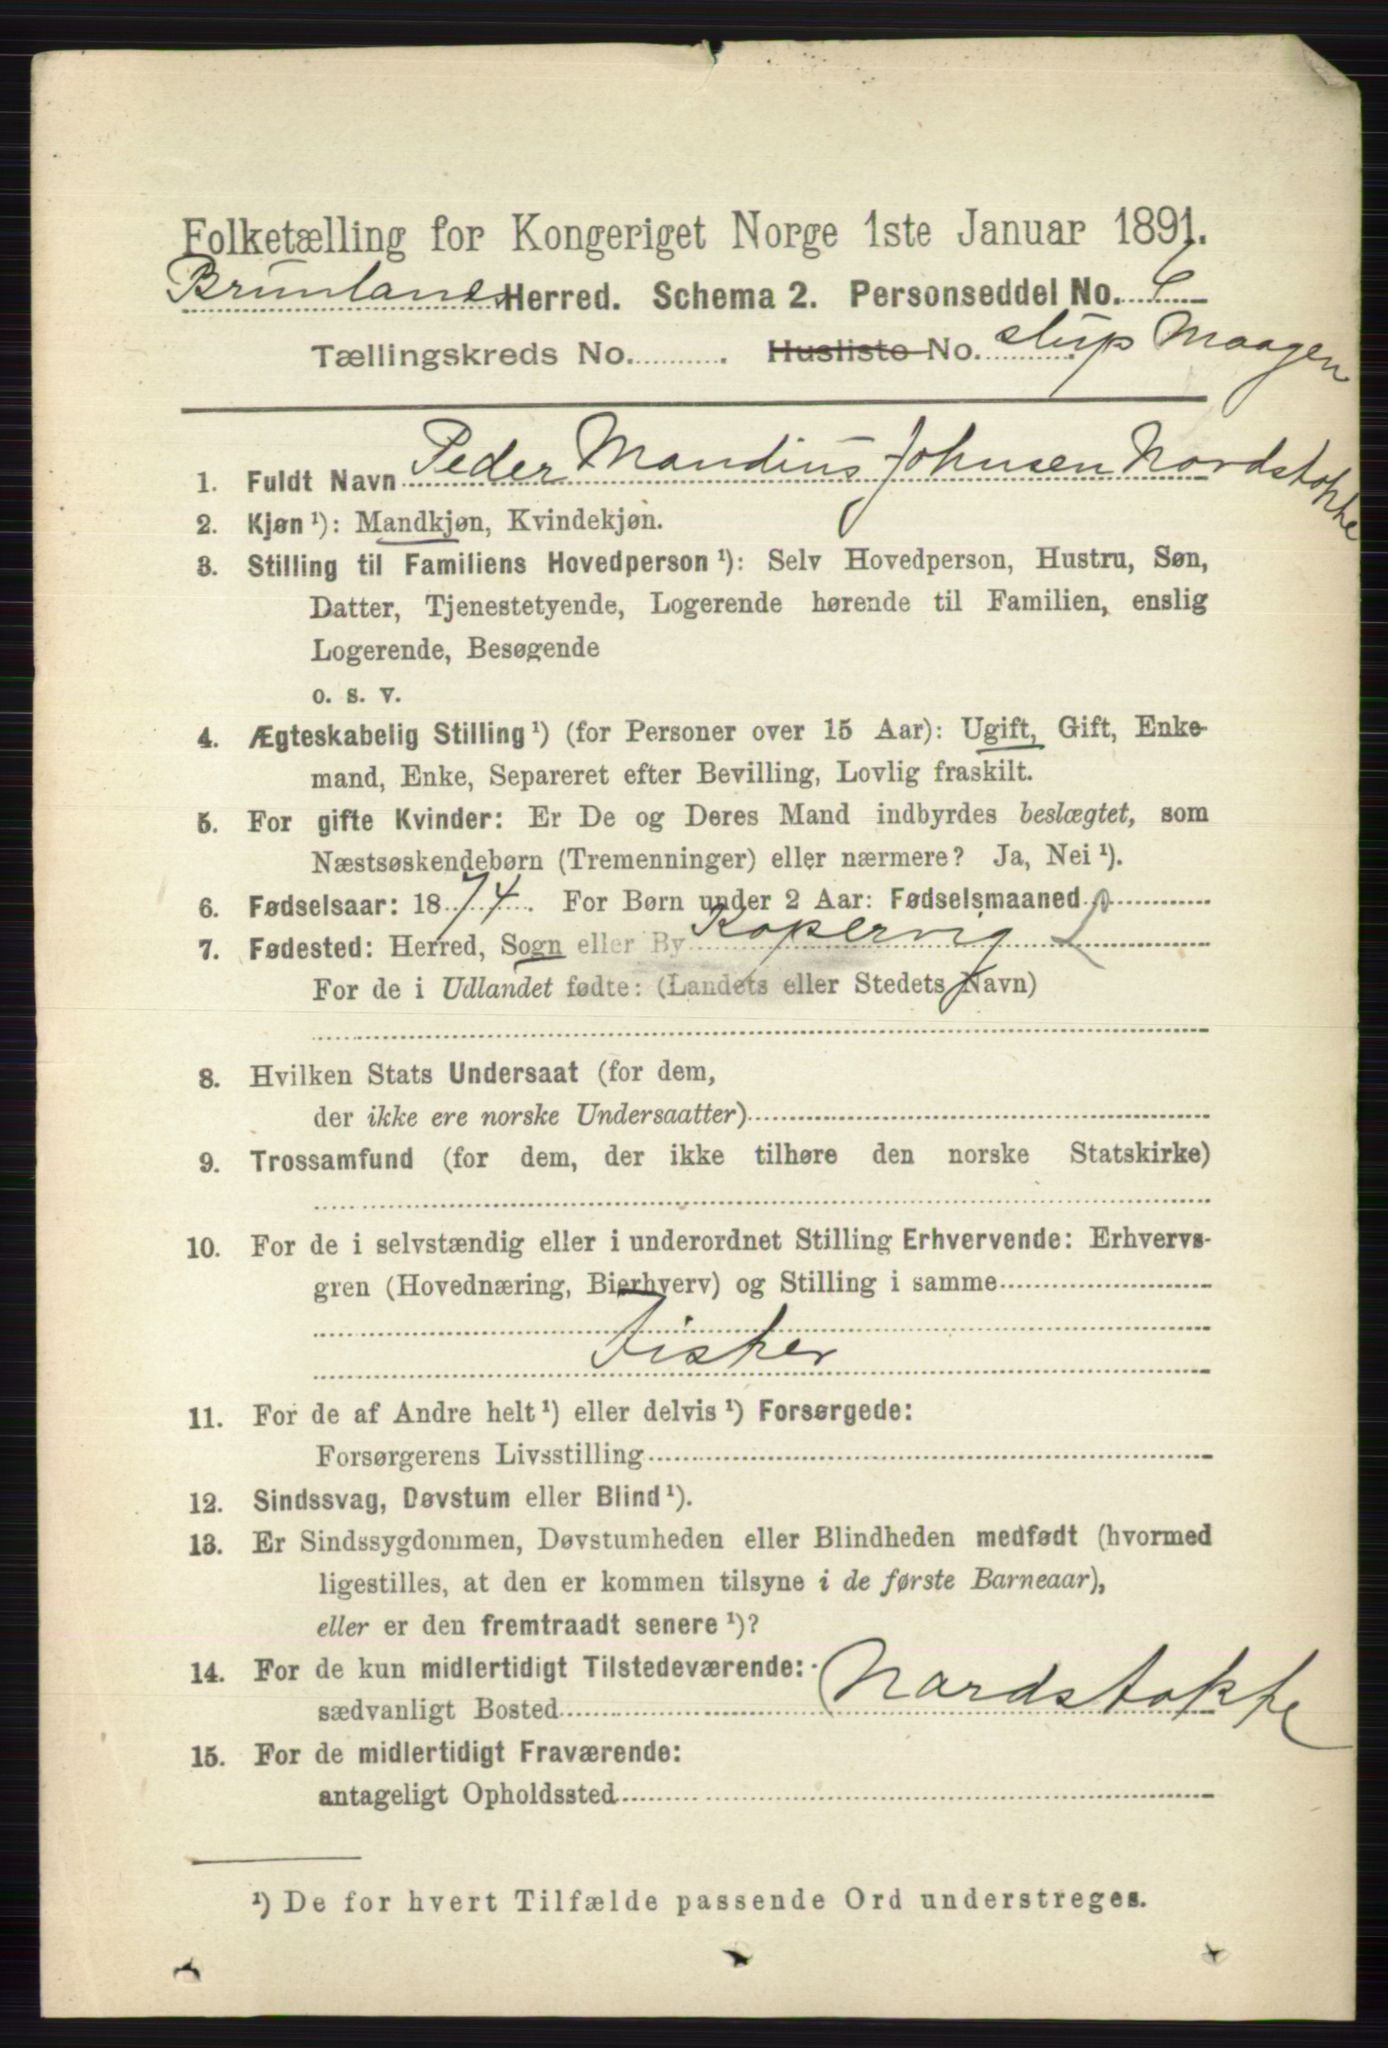 Folketælling for Kongeriget Norge 1ste Januar 1891.
Brunlanes Herred. Schema 2. Personseddel No. 6
Tællingskreds No. ........ . Husliste No. slup Maagen
1. Fuldt Navn Peder Mandius Johnsen Nordstokke
2. Kjøn ¹): Mandkjøn, Kvindekjøn.
3. Stilling til Familiens Hovedperson ¹): Selv Hovedperson, Hustru, Søn,
Datter, Tjenestetyende, Logerende hørende til Familien, enslig
Logerende, Besøgende
o. s. v.
4. Ægteskabelig Stilling ¹) (for Personer over 15 Aar): Ugift, Gift, Enke-
mand, Enke, Separeret efter Bevilling, Lovlig fraskilt.
5. For gifte Kvinder: Er De og Deres Mand indbyrdes beslægtet, som
Næstsøskendebørn (Tremenninger) eller nærmere? Ja, Nei ¹).
6. Fødselsaar: 1874. For Børn under 2 Aar: Fødselsmaaned
7. Fødested: Herred, Sogn eller By Kopervig L
For de i Udlandet fødte: (Landets eller Stedets Navn)
8. Hvilken Stats Undersaat (for dem,
der ikke ere norske Undersaatter)
9. Trossamfund (for dem, der ikke tilhøre den norske Statskirke)
10. For de i selvstændig eller i underordnet Stilling Erhvervende: Erhvervs-
gren (Hovednæring, Bierhverv) og Stilling i samme
Fisker
11. For de af Andre helt ¹) eller delvis ¹) Forsørgede:
Forsørgerens Livsstilling
12. Sindssvag, Døvstum eller Blind ¹).
13. Er Sindssygdommen, Døvstumheden eller Blindheden medfødt (hvormed
ligestilles, at den er kommen tilsyne i de første Barneaar),
eller er den fremtraadt senere ¹)?
14. For de kun midlertidigt Tilstedeværende:
sædvanligt Bosted Nordstokke
15. For de midlertidigt Fraværende:
antageligt Opholdssted
¹) De for hvert Tilfælde passende Ord understreges.